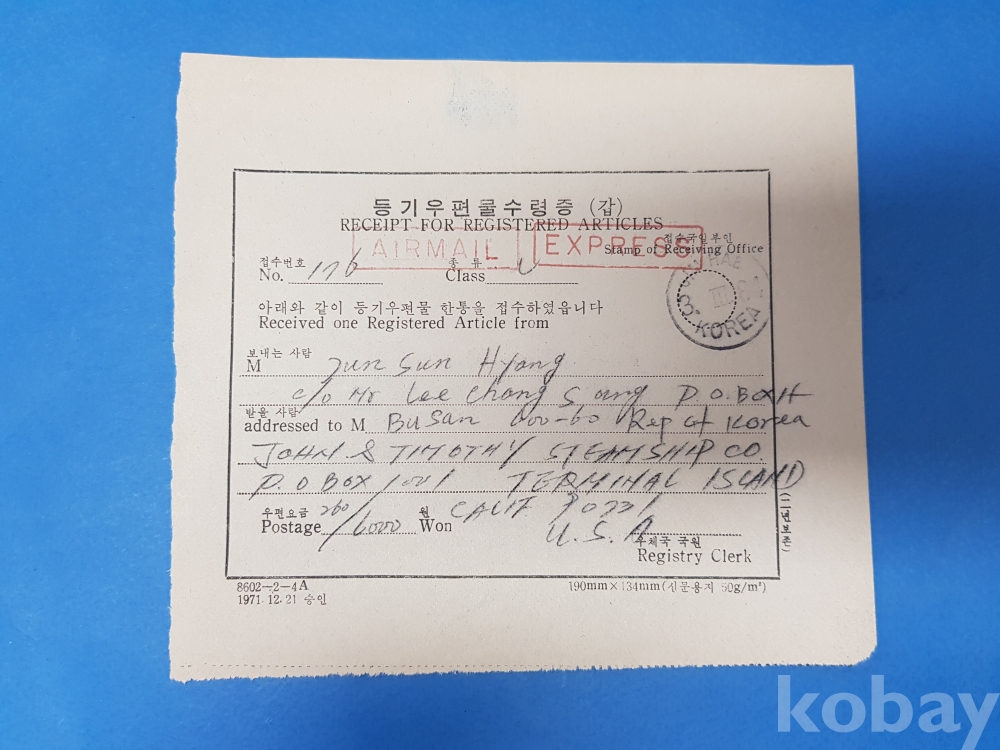 등기우편물수령증 (갑)
RECEIPT FOR REGISTERED ARTICLES
AIRMAIL EXPRESS
접수국일부인
Stamp of Receiving Office
접수번호
No. 176
종류
Class
KOREA
아래와 같이 등기우편물 한통을 접수하였읍니다
Received one Registered Article from
보내는 사람
M Jun Sun Hyang
c/o Mr Lee Chang Sang P.O.BOX H
받을 사람
addressed to M Busan 600-60 Rep of Korea
JOHN & TIMOTHY STEAMSHIP CO.
P.O BOX 1021 TERMINAL ISLAND
우편요금 260 원 CALIF 90731
Postage /6000 Won U.S.A
우체국 국원
Registry Clerk
(二년보존)
8602-2-4A
1971.12.21 승인
190mm×134mm(신문용지 50g/m²)
kobay